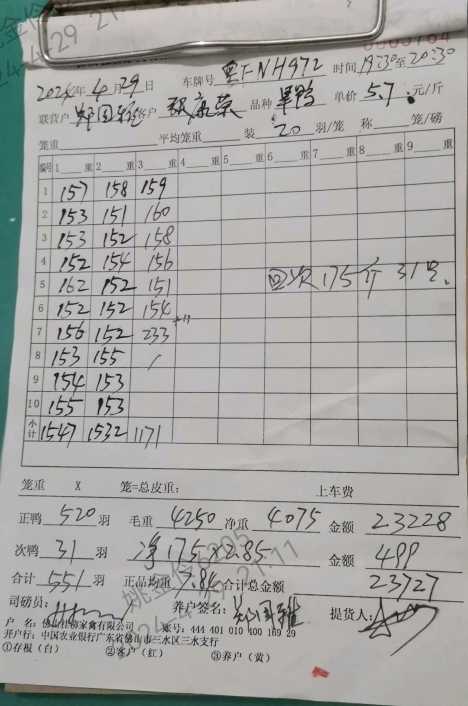 2024年4月29日 车牌号 粤F-NH972 时间19:30至20:30
联货户 郑国雄 客户 品种 单价 5.7元/斤
笼重 平均笼重 装 20 羽/笼 称 笼/磅
编号 1 重 2 重 3 重 4 重 5 重 6 重 7 重 8 重 9 重
1 157 158 159
2 153 151 160
3 153 152 158
4 152 154 156
5 162 152 151 回次175斤31只.
6 152 152 154
7 156 152 233 +11
8 153 155 /
9 154 153
10 155 153
小计 1547 1532 1171
笼重 X 笼=总皮重: 上车费
正鸭 520 羽 毛重 4250 净重 4075 金额 23228
次鸭 31 羽 净175×2.85 金额 499
合计 551 羽 正品均重 7.84 合计总金额 23727
司磅员: 养户签名: 郑国雄 提货人:
账号: 444 401 010 400 169 29
开户行: 中国农业银行广东省佛山市三水区三水支行
①存根（白） ②客户（红） ③养户（黄）